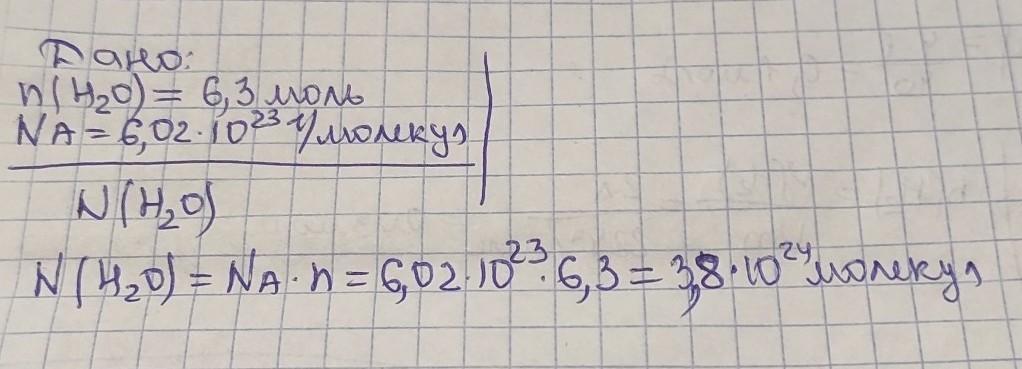 Дано:
n(H₂O) = 6,3 моль
NA = 6,02 · 10²³ 1/молекул
N(H₂O)
N(H₂O) = NA · n = 6,02 · 10²³ · 6,3 = 3,8 · 10²⁴ молекул